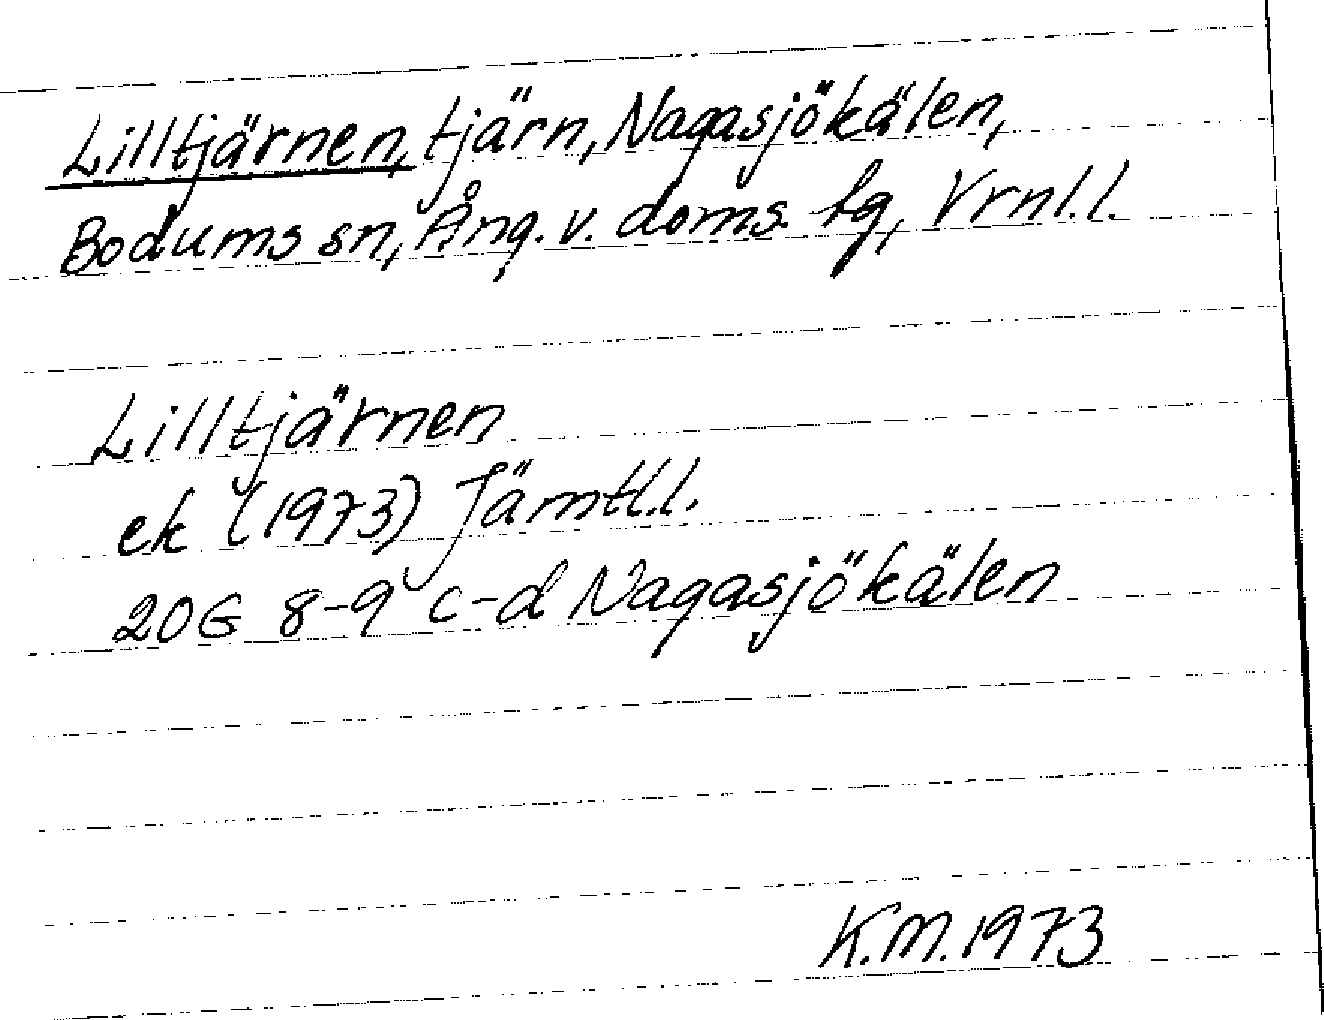 Lilltjärnen, tjärn, Nagasjökälen,
Bodums sn, Ång. v. doms. fg, Vrnl.l.
Lilltjärnen
ek (1973) Jämtl.l.
20G 8-9 c-d Nagasjökälen
K.M. 1973